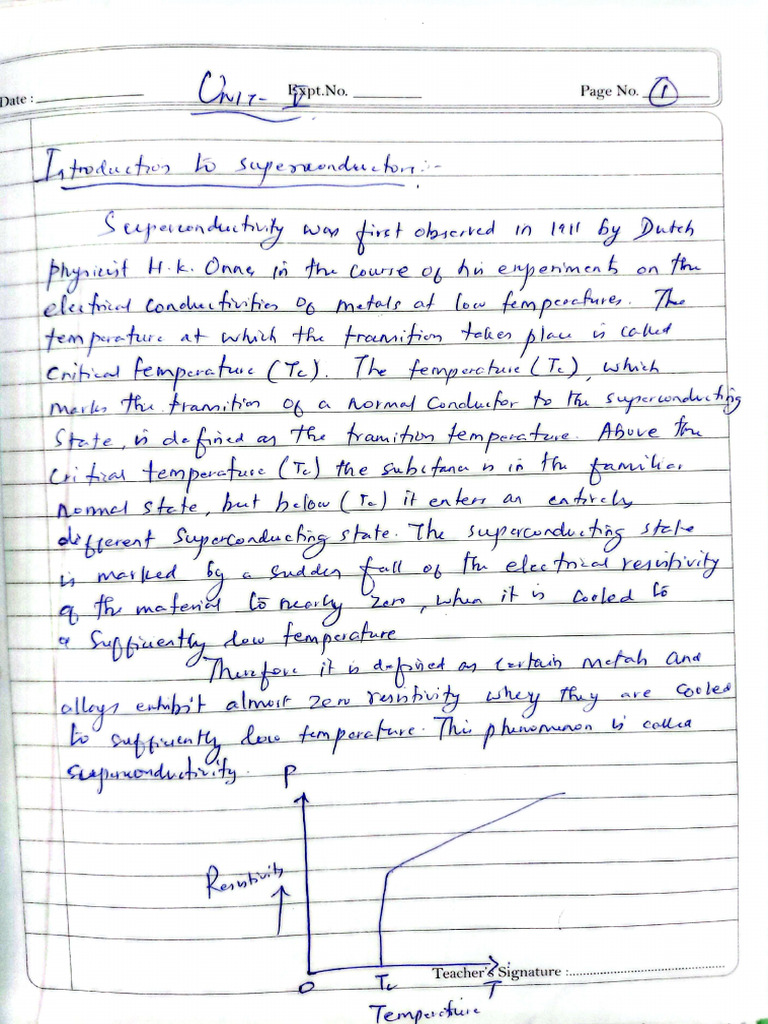 Date : Expt.No. Page No. 1
UNIT- V
Introduction to superconductors:-
Superconductivity was first observed in 1911 by Dutch
physicist H.K. Onnes in the course of his experiments on the
electrical conductivities of metals at low temperatures. The
temperature at which the transition takes place is called
critical temperature (Tc). The temperature (Tc), which
marks the transition of a normal conductor to the superconducting
state, is defined as the transition temperature. Above the
critical temperature (Tc) the substance is in the familiar
normal state, but below (Tc) it enters an entirely
different superconducting state. The superconducting state
is marked by a sudden fall of the electrical resistivity
of the material to nearly zero, when it is cooled to
a sufficiently low temperature
Therefore it is defined as certain metals and
alloys exhibit almost zero resistivity when they are cooled
to sufficiently low temperature. This phenomenon is called
superconductivity.
ρ
Resistivity
Teacher's Signature :
0 Tc T
Temperature